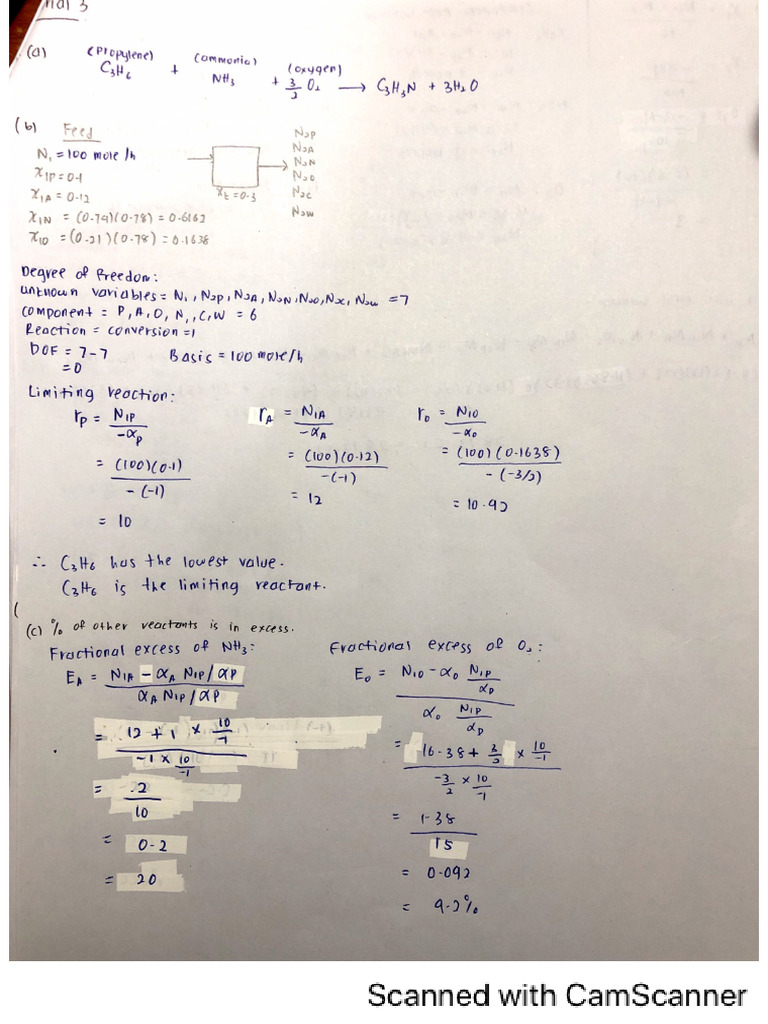 3
(a) (propylene) (ammonia) (oxygen)
C3H6 + NH3 + 3/2 O2 → C3H3N + 3H2O
(b) Feed
N1 = 100 mole/h
x1P = 0.1
x1A = 0.12
x1N = (0.79)(0.78) = 0.6162
x1O = (0.21)(0.78) = 0.1638
xt = 0.3
N2P
N2A
N2N
N2O
N2C
N2W
Degree of Freedom:
unknown variables = N1, N2P, N2A, N2N, N2O, N2C, N2W = 7
component = P, A, O, N, C, W = 6
Reaction = conversion = 1
DOF = 7-7 Basis = 100 mole/h
= 0
Limiting reaction:
rP = N1P / -αP
= (100)(0.1) / -(-1)
= 10
rA = N1A / -αA
= (100)(0.12) / -(-1)
= 12
rO = N1O / -αO
= (100)(0.1638) / -(-3/2)
= 10.92
∴ C3H6 has the lowest value.
C3H6 is the limiting reactant.
(c) % of other reactants is in excess.
Fractional excess of NH3:
EA = N1A - αA N1P/αP / αA N1P/αP
= 12 + 1 × 10/-1 / -1 × 10/-1
= 2 / 10
= 0.2
= 20
Fractional excess of O2:
EO = N1O - αO N1P/αP / αO N1P/αP
= 16.38 + 3/2 × 10/-1 / -3/2 × 10/-1
= 1.38 / 15
= 0.092
= 9.2%
Scanned with CamScanner